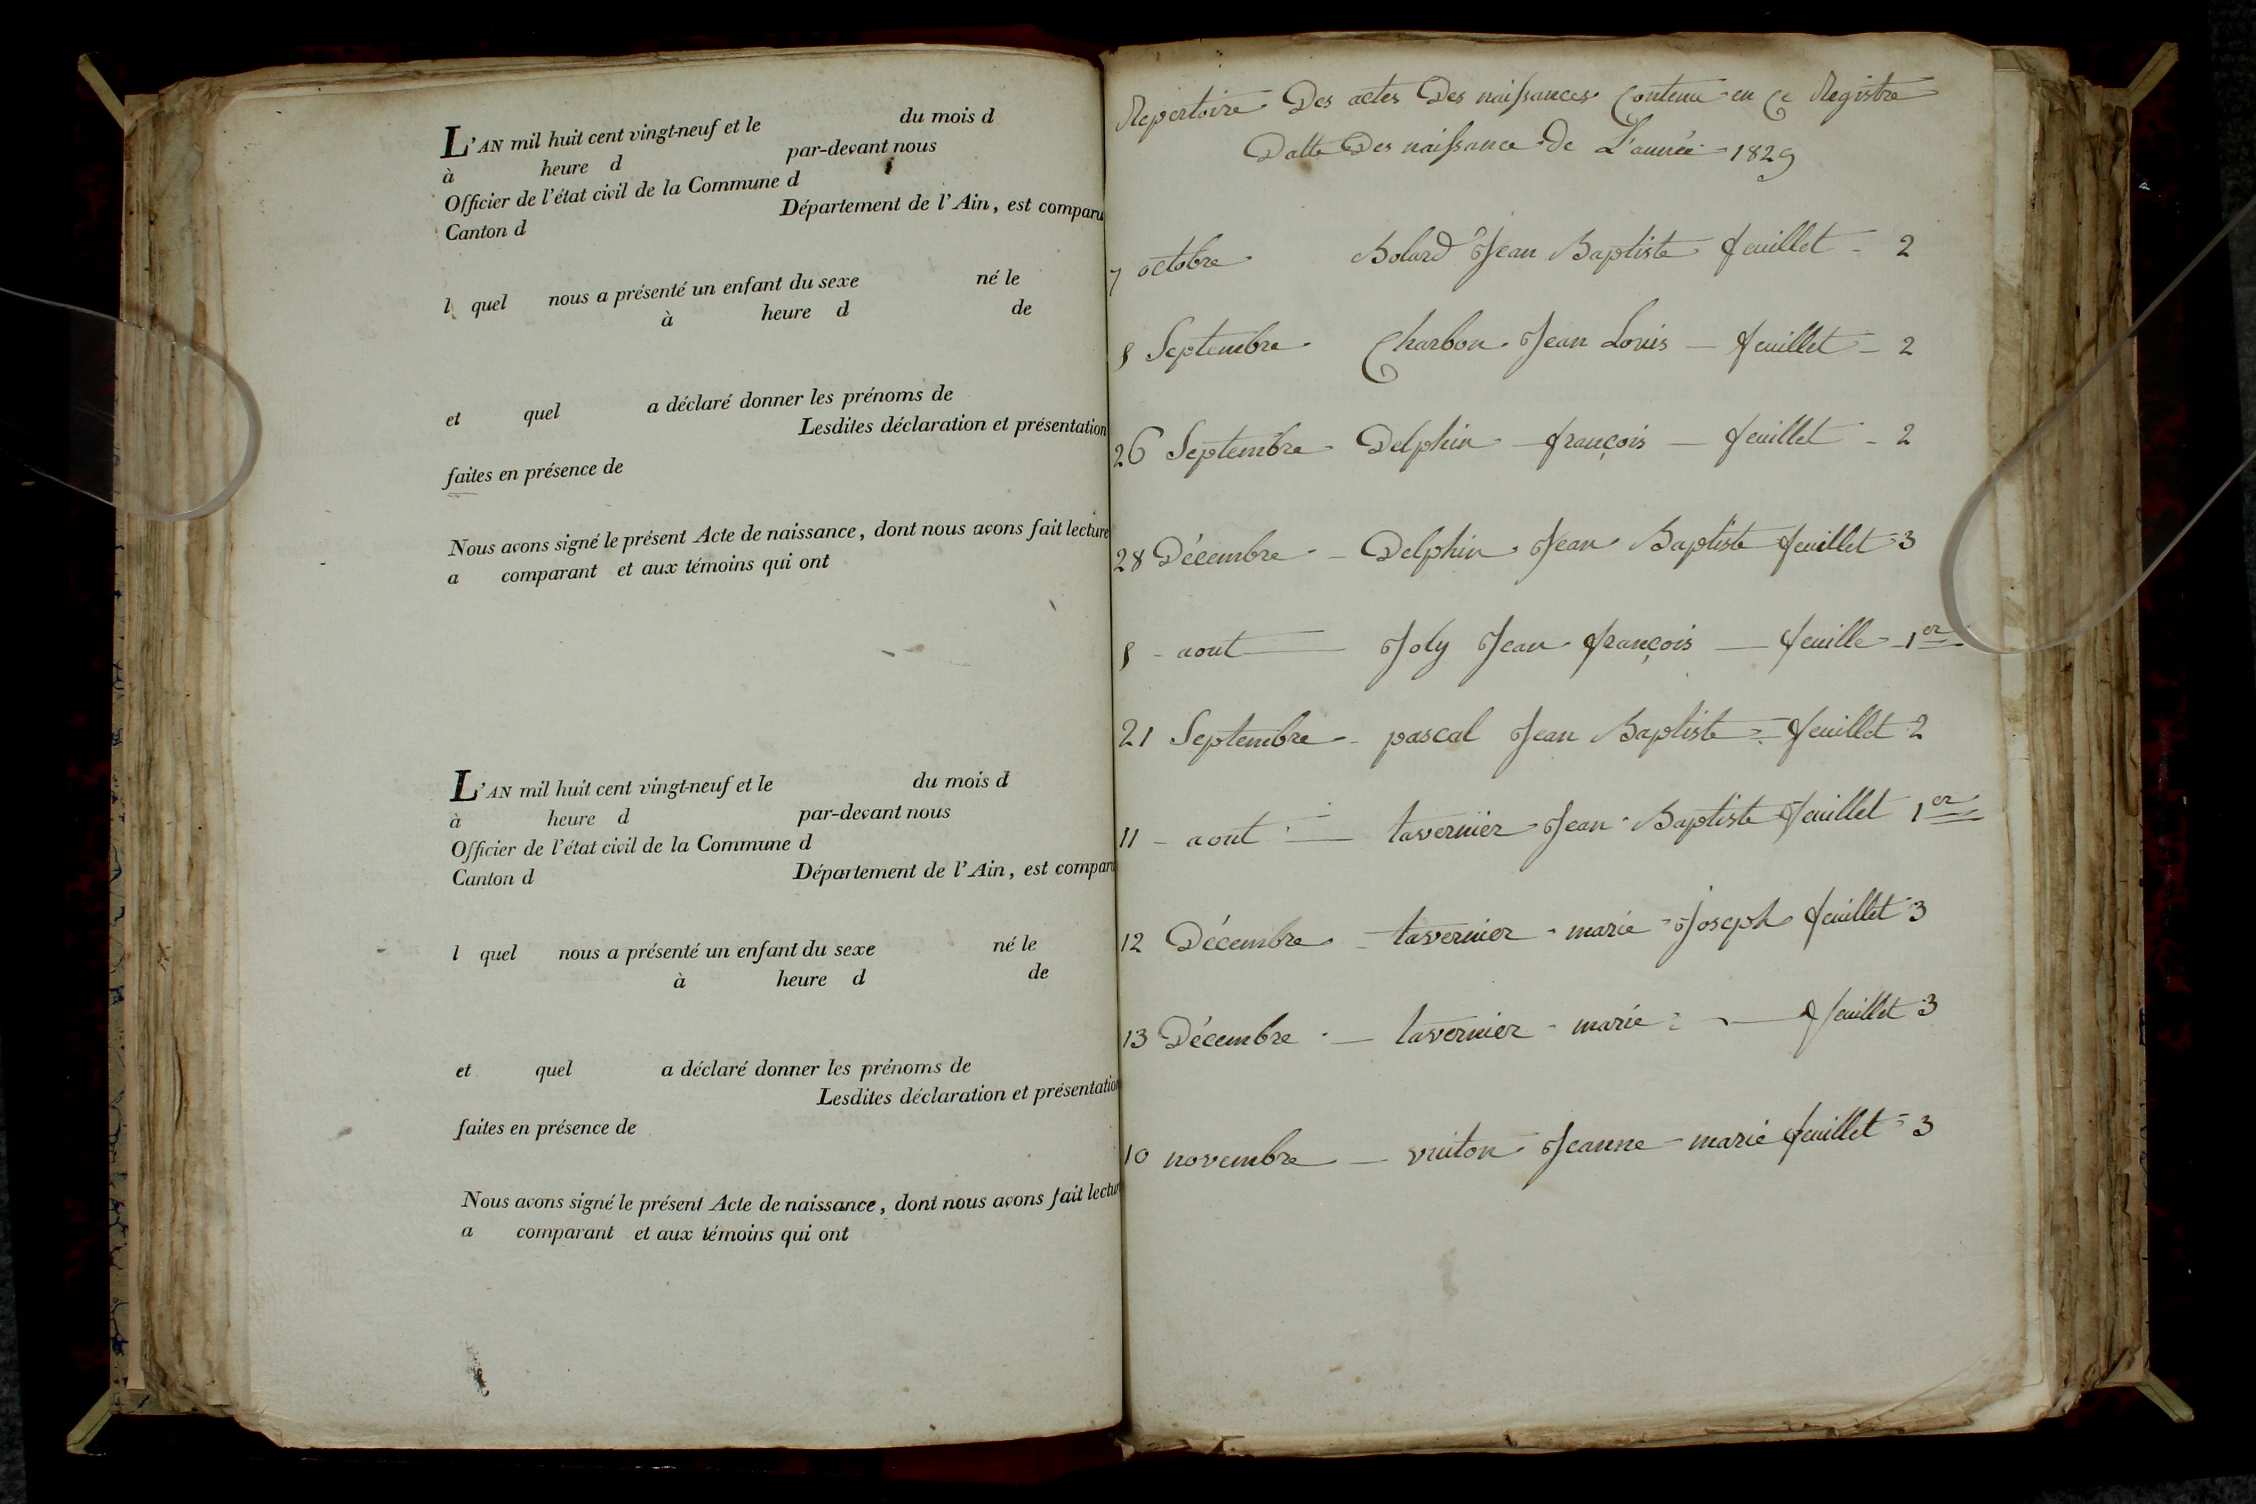 L'AN mil huit cent vingt-neuf et le du mois d
à heure d par-devant nous
Officier de l'état civil de la Commune d
Canton d Département de l'Ain, est comparu
l quel nous a présenté un enfant du sexe né le
à heure d de
et quel a déclaré donner les prénoms de
Lesdites déclaration et présentation
faites en présence de
Nous avons signé le présent Acte de naissance, dont nous avons fait lecture
a comparant et aux témoins qui ont
L'AN mil huit cent vingt-neuf et le du mois d
à heure d par-devant nous
Officier de l'état civil de la Commune d
Canton d Département de l'Ain, est comparu
l quel nous a présenté un enfant du sexe né le
à heure d de
et quel a déclaré donner les prénoms de
Lesdites déclaration et présentation
faites en présence de
Nous avons signé le présent Acte de naissance, dont nous avons fait lectur
a comparant et aux témoins qui ont
Repertoire Des actes Des naissances Contenu en Ce Registre
Datte Des naissance de L'année 1829
7 octobre Bolard Jean Baptiste feuillet - 2
8 Septembre Charbon Jean Louis — feuillet - 2
26 Septembre - Delphin - françois — feuillet - 2
28 Décembre - Delphin Jean Baptiste feuillet 3
8 - aout — Joly Jean françois — feuille - 1er
21 Septembre - pascal Jean Baptiste = feuillet 2
11 - aout — tavernier Jean Baptiste feuillet 1er
12 Décembre - tavernier - marie - Joseph feuillet 3
13 Décembre — tavernier - marie — feuillet 3
10 novembre — vuiton Jeanne - marie feuillet = 3